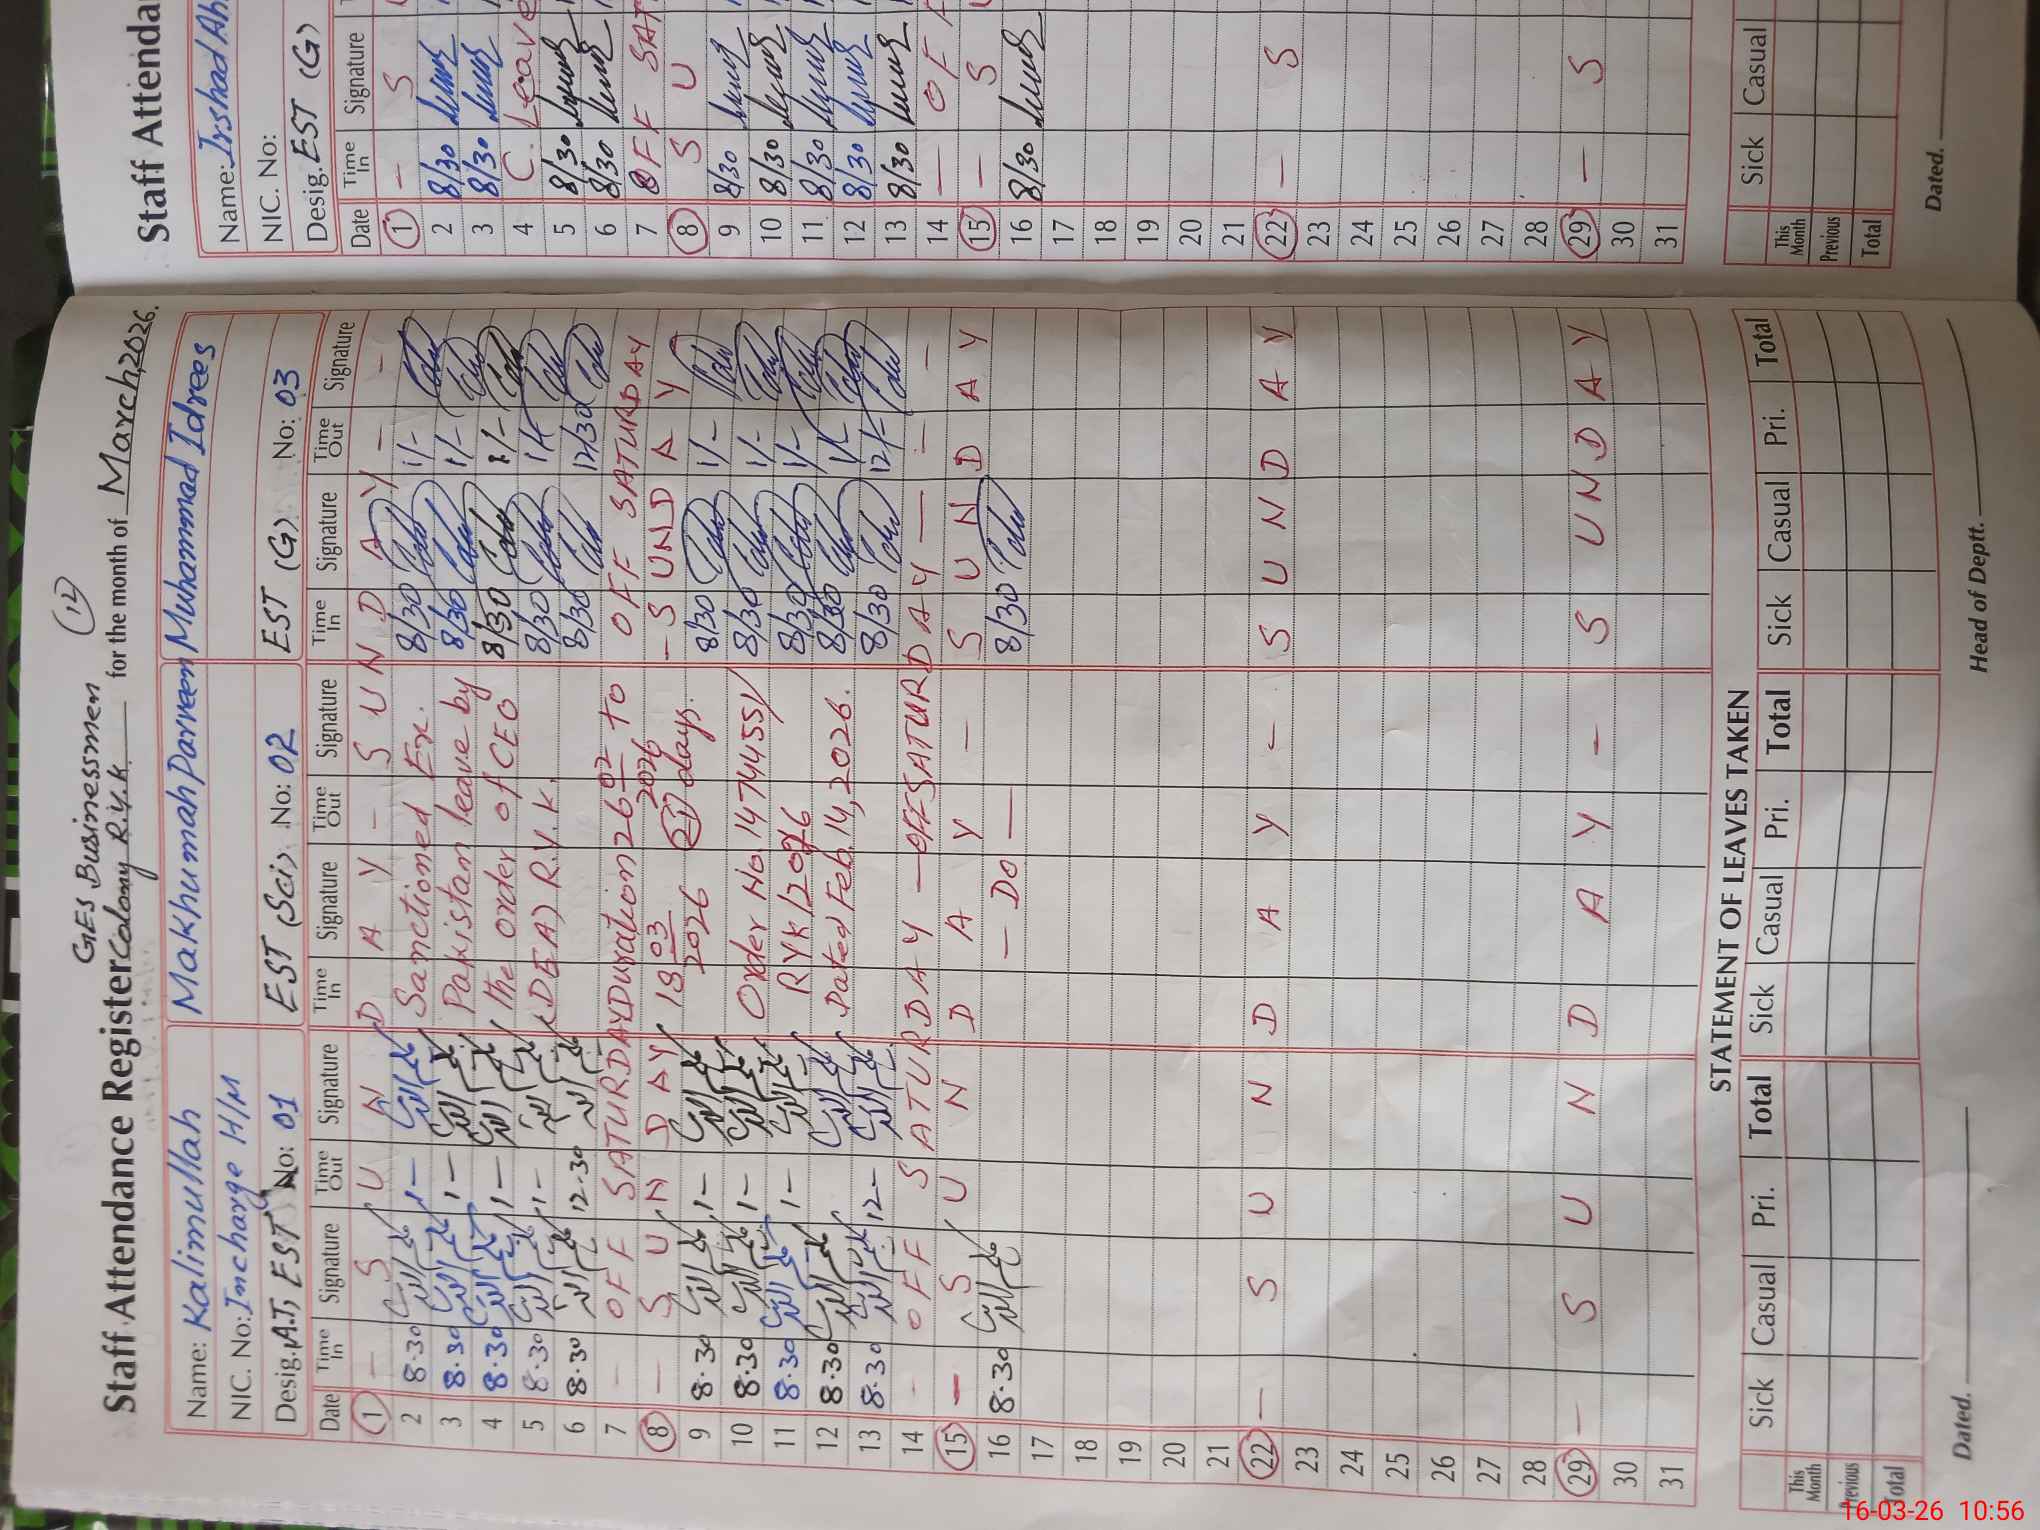 (12)
GES Businessmen
Staff Attendance Register Colony R.Y.K. for the month of March, 2026.
Name: Kalimullah
NIC. No: Incharge H/M
Desig. EST No: 01
Makhdumah Parveen
EST (Sci) No: 02
Muhammad Idrees
EST (G) No: 03
Date Time In Signature Time Out Signature Time In Signature Time Out Signature Time In Signature Time Out Signature
1 — S U N D A Y - S U N D A Y - -
2 8.30 1— Sanctioned Ex. 8/30 1/-
3 8.30 1— Pakistan leave by 8/30 1/-
4 8.30 1— the order of CEO 8/30 1/-
5 8.30 1— (DEA) R.Y.K. 8/30
6 8.30 12.30 8/30 12/30
7 - OFF SATURDAY Duration 26 02 2026 to OFF SATURDAY
8 — S U N D A Y 18 03 2026 (21) days. - S U N D A Y
9 8.30 1— 8/30 1/-
10 8.30 1— Order No. 8/30 1/-
11 8.30 1— RYK/2026 8/30 1/-
12 8.30 Dated Feb. 14, 2026. 8/30
13 8.30 12— 8/30 12/-
14 - OFF SATURDAY — OFF SATURDAY — - -
15 — S U N D A Y - S U N D A Y
16 8.30 — DO — 8/30
17
18
19
20
21
22 — S U N D A Y - S U N D A Y
23
24
25
26
27
28
29 — S U N D A Y - S U N D A Y
30
31
STATEMENT OF LEAVES TAKEN
Sick Casual Pri. Total Sick Casual Pri. Total Sick Casual Pri. Total
This Month
Previous
Total
Dated. Head of Deptt.
Staff Attenda
Name: Irshad Ah
NIC. No:
Desig. EST (G)
Date Time In Signature
1 — S
2 8/30
3 8/30
4 C. Leave
5 8/30
6 8/30
7 OFF SAT
8 S U
9 8/30
10 8/30
11 8/30
12 8/30
13 8/30
14 — OF
15 — S
16 8/30
17
18
19
20
21
22 — S
23
24
25
26
27
28
29 — S
30
31
Sick Casual
This Month
Previous
Total
Dated.
16-03-26 10:56